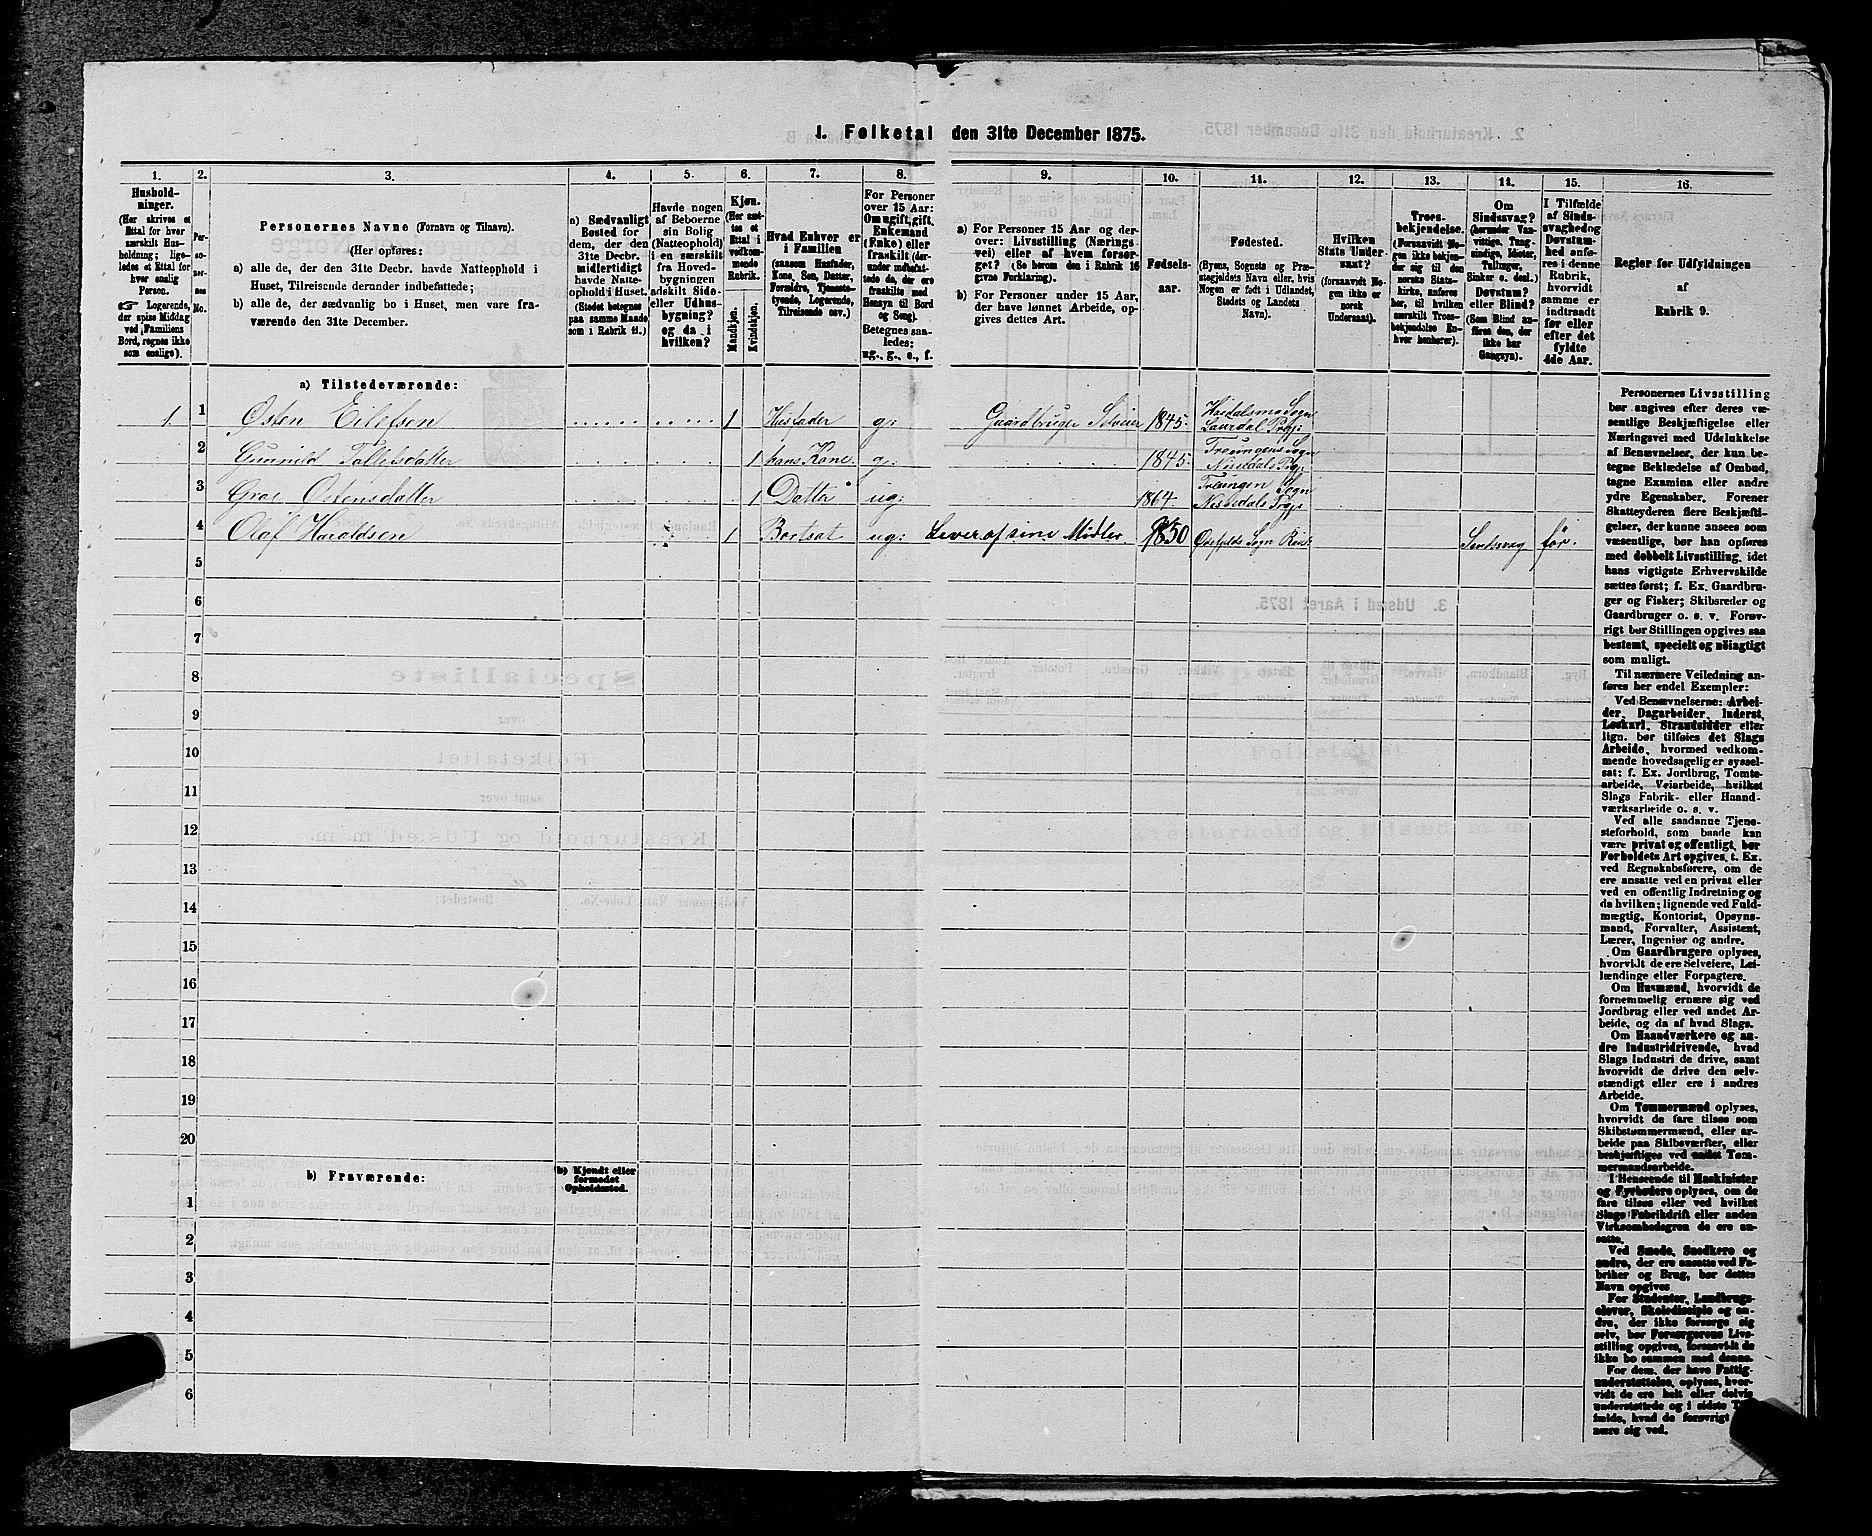 1. Folketal den 31te December 1875.
1.
Hushold-
ninger.
(Her skrives et
Ettal for hver
særskilt Hus-
holdning; lige-
ledes et Ettal for
hver enslig
Person.
Logerende,
der spise Middag
ved Familiens
Bord, regnes ikke
som enslige).
2.
Per-
so-
ner-
nes
No.
3.
Personernes Navne (Fornavn og Tilnavn).
(Her opføres:
a) alle de, der den 31te Decbr. havde Natteophold i
Huset, Tilreisende derunder indbefattede;
b) alle de, der sædvanlig bo i Huset, men vare fra-
værende den 31te December.
4.
a) Sædvanligt
Bosted for
dem, der den
31te Decbr.
midlertidigt
havde Natte-
ophold i Huset.
(Stedet betegnes
paa samme Maade
som i Rubrik 11.)
5.
Havde nogen
af Beboerne
sin Bolig
(Natteophold)
i en særskilt
fra Hoved-
bygningen
adskilt Side-
eller Udhus-
bygning?
og da i
hvilken?
6.
Kjøn.
(Her sæt-
tes et
Ettal i
vedkom-
mende
Rubrik.
Mandkjøn.
Kvindekjøn.
7.
Hvad Enhver er
i Familien
(saasom Husfader,
Kone, Søn, Datter,
Forældre, Tjeneste-
tyende, Logerende,
Tilreisende osv.)
8.
For Personer
over 15 Aar:
Om ugift, gift,
Enkemand
(Enke) eller
fraskilt (der-
under indbefat-
tede de, der ere
fraskilte med
Hensyn til Bord
og Seng).
Betegnes saa-
ledes:
ug., g., e., f.
9.
a) For Personer 15 Aar og der-
over: Livsstilling (Nærings-
vei) eller af hvem forsør-
get? (Se herom den i Rubrik 16
givne Forklaring).
b) For Personer under 15 Aar,
der have lønnet Arbeide, op-
gives dettes Art.
10.
Fødsels-
aar.
11.
Fødested.
(Byens, Sognets og Præ-
stegjeldets Navn eller, hvis
Nogen er født i Udlandet,
Stedets og Landets
Navn).
12.
Hvilken
Stats Under-
saat?
(forsaavidt No-
gen ikke er
norsk
Undersaat).
13.
Troes-
bekjendelse.
(Forsaavidt No-
gen ikke bekjen-
der sig til den
norske Stats-
kirke, anføres
her, til hvilken
særskilt Troes-
bekjendelse En-
hver henhører).
14.
Om
Sindssvag?
(herunder Van-
vittige, Tung-
sindige, Idioter,
Tullinger,
Sinker o. desl.)
Døvstum?
eller Blind?
(Som Blind an-
føres den, der
ikke har
Gangsyn).
15.
I Tilfælde
af Sinds-
svaghed og
Døvstum-
hed anfø-
res i denne
Rubrik,
hvorvidt
samme er
indtraadt
før eller
efter det
fyldte
4de Aar.
16.
Regler for Udfyldningen
af
Rubrik 9.
a) Tilstedeværende:
1 1 Østen Eilefsen 1 Husfader g: Gaardbruger Selveier 1845 Sogn Laurdal Prgj:
2 Gunnild Tallefsdatter 1 hans Kone g: 1845 Treungens Sogn Nissedals Prgj:
3 Groe Østensdatter 1 Datter ug: 1864 Treungen Sogn Nissedals Prgj:
4 Olaf Haraldsen 1 Bortsat ug: Lever af sine Midler 1850 Sogn Sindssvag før.
5
6
7
8
9
10
11
12
13
14
15
16
17
18
19
20
b) Fraværende:
b) Kjendt eller
formodet
Opholdssted.
1
2
3
4
5
6
Personernes Livsstilling
bør angives efter deres væ-
sentlige Beskjæftigelse eller
Næringsvei med Udelukkelse
af Benævnelser, der kun be-
tegne Beklædelse af Ombud,
tagne Examina eller andre
ydre Egenskaber. Forener
Skatteyderen flere Beskjæfti-
gelser, der kunne ansees som
væsentlige, bør han opføres
med dobbelt Livsstilling, idet
hans vigtigste Erhvervskilde
sættes først; f. Ex. Gaardbru-
ger og Fisker; Skibsreder og
Gaardbruger o. s. v. Forøv-
rigt bør Stillingen opgives saa
bestemt, specielt og nöiagtigt
som muligt.
Til nærmere Veiledning an-
føres her endel Exempler:
Ved Benævnelserne: Arbei-
der, Dagarbeider, Inderst,
Løskarl, Strandsidder eller
lign. bør tilføies det Slags
Arbeide, hvormed vedkom-
mende hovedsagelig er syssel-
sat: f. Ex. Jordbrug, Tomte-
arbeide, Veiarbeide, hvilket
Slags Fabrik- eller Haand-
værksarbeide o. s. v.
Ved alle saadanne Tjene-
steforhold, som baade kan
være privat og offentligt, bør
Forholdets Art opgives, t. Ex.
ved Regnskabsførere, om de
ere ansatte ved en privat eller
ved en offentlig Indretning og
da hvilken; lignende ved Fuld-
mægtig, Kontorist, Opsyns-
mand, Forvalter, Assistent,
Lærer, Ingeniør og andre.
Om Gaardbrugere oplyses,
hvorvidt de ere Selveiere, Lei-
lændinge eller Forpagtere.
Om Husmænd, hvorvidt de
fornemmelig ernære sig ved
Jordbrug eller ved andet Ar-
beide, og da af hvad Slags.
Om Haandværkere og an-
dre Industridrivende, hvad
Slags Industri de drive, samt
hvorvidt de drive den selv-
stændigt eller ere i andres
Arbeide.
Om Tømmermænd oplyses,
hvorvidt de fare tilsøs som
Skibstømmermænd, eller ar-
beide paa Skibsværfter, eller
beskjæftiges ved andet Tøm-
mermandsarbeide.
I Henseende til Maskinister
og Fyrbødere oplyses, om de
fare tilsøs eller ved hvilket
Slags Fabrikdrift eller anden
Virksomhedsgren de ere an-
satte.
Ved Smede, Snedkere og
andre, der ere ansatte ved Fa-
briker og Brug, bør dettes
Navn opgives
For Studenter, Landbrugs-
elever, Skoledisciple og an-
dre, der ikke forsørge sig
selv, bør Forsørgerens Livs-
stilling opgives, forsaavidt de
ikke bo sammen med denne.
For dem, der have Fattig-
understøttelse, oplyses, hvor-
vidt de ere helt eller delvis
understøttede og i sidste
hvad de forøvrigt
nære sig ved.